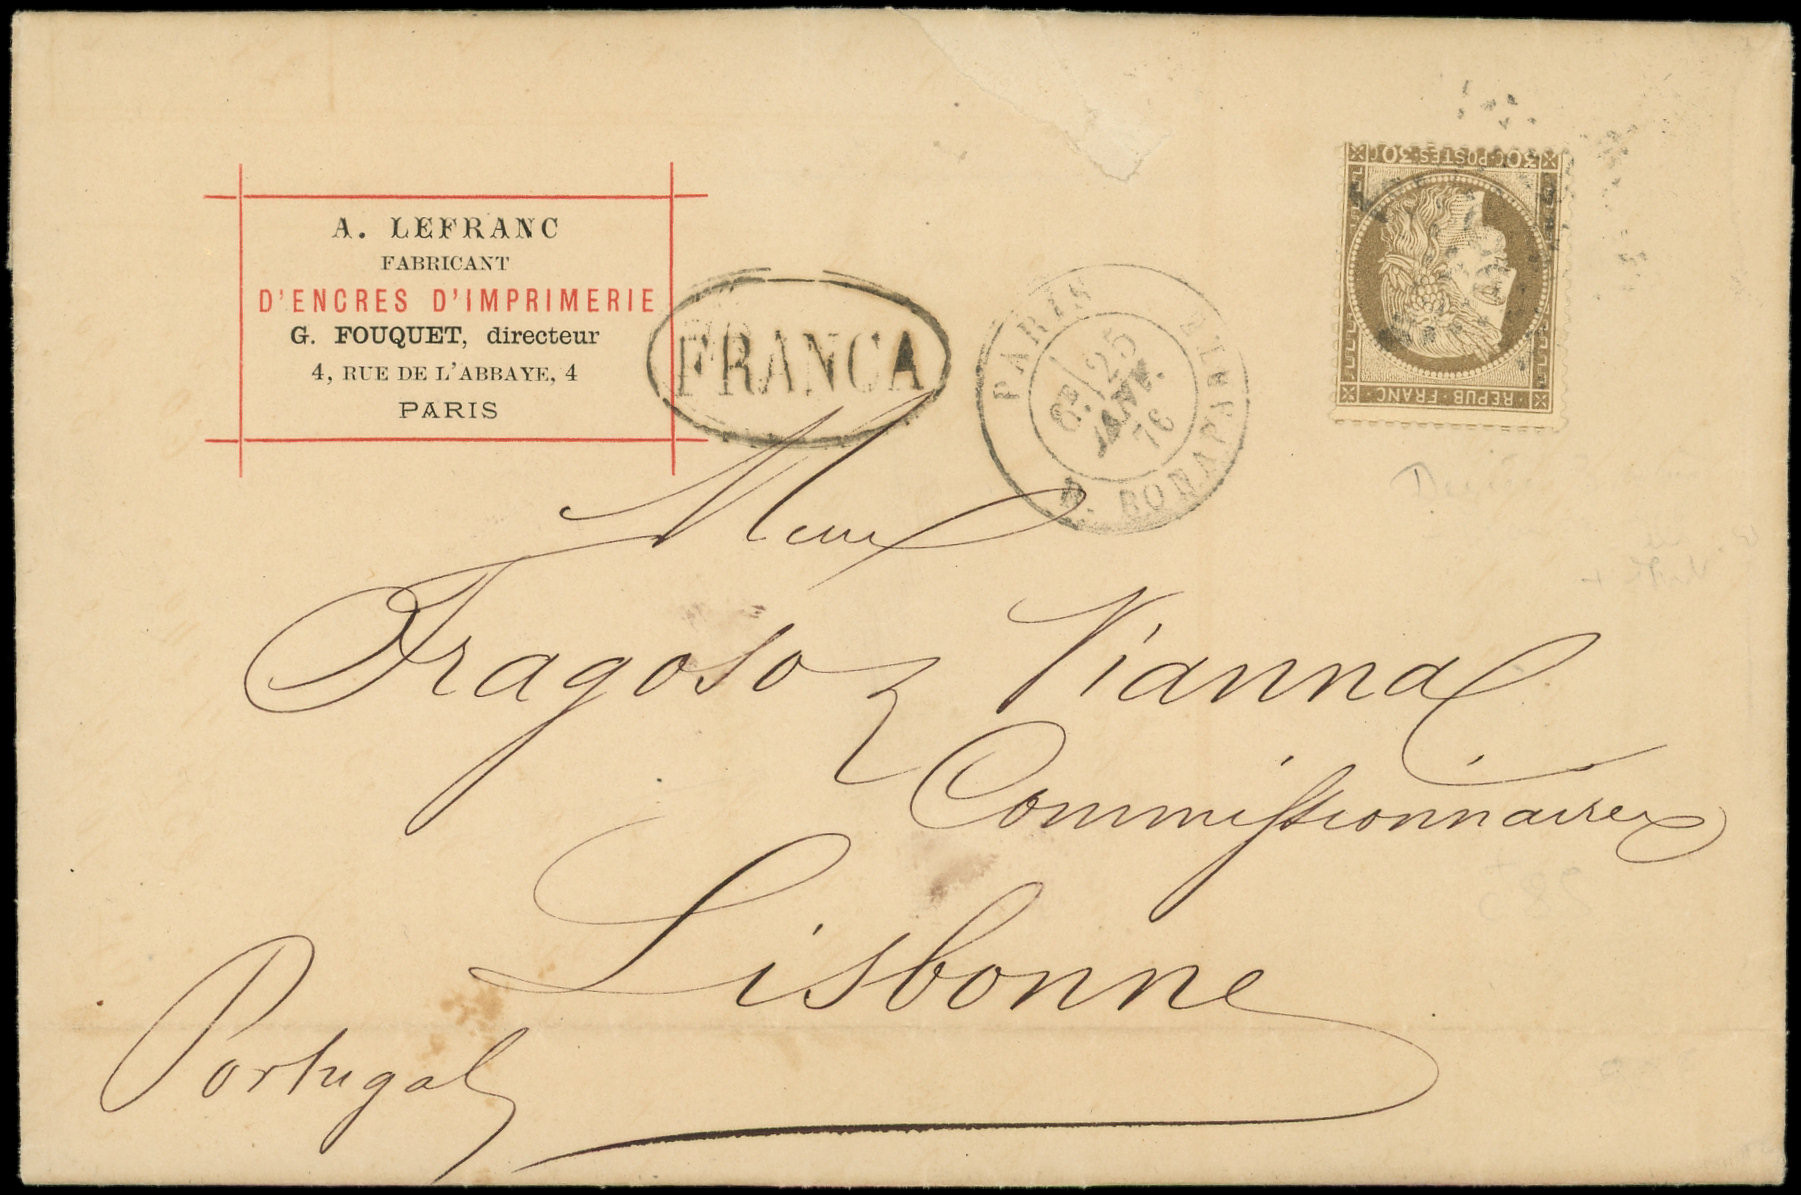 A. LEFRANC
FABRICANT
D'ENCRES D'IMPRIMERIE
G. FOUQUET, directeur
4, RUE DE L'ABBAYE, 4
PARIS
FRANCA
PARIS
R. BONAPARTE
6E
25
JANV.
76
30 C · POSTES · 30 C
REPUB · FRANC
Fragoso & Vianna
Commissionnaires
Lisbonne
Portugal